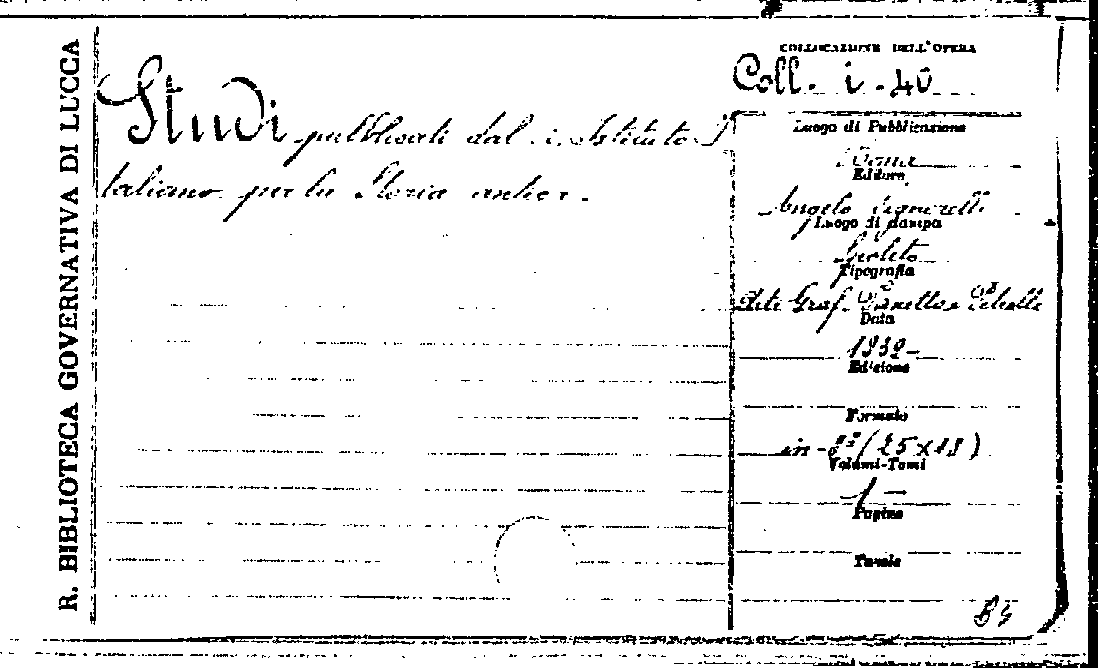 R. BIBLIOTECA GOVERNATIVA DI LUCCA
Studi pubblicati dal istituto I
taliano per la Storia antica.
COLLOCAZIONE DELL'OPERA
Coll. i. 40
Luogo di Pubblicazione
Roma
Editore
Angelo Signorelli
Luogo di stampa
Spoleto
Tipografia
Arti Graf. Panetto e Petrelli
Data
1939
Edizione
Formato
in-8° (25x18)
Volumi-Tomi
1
Pagine
Tavole